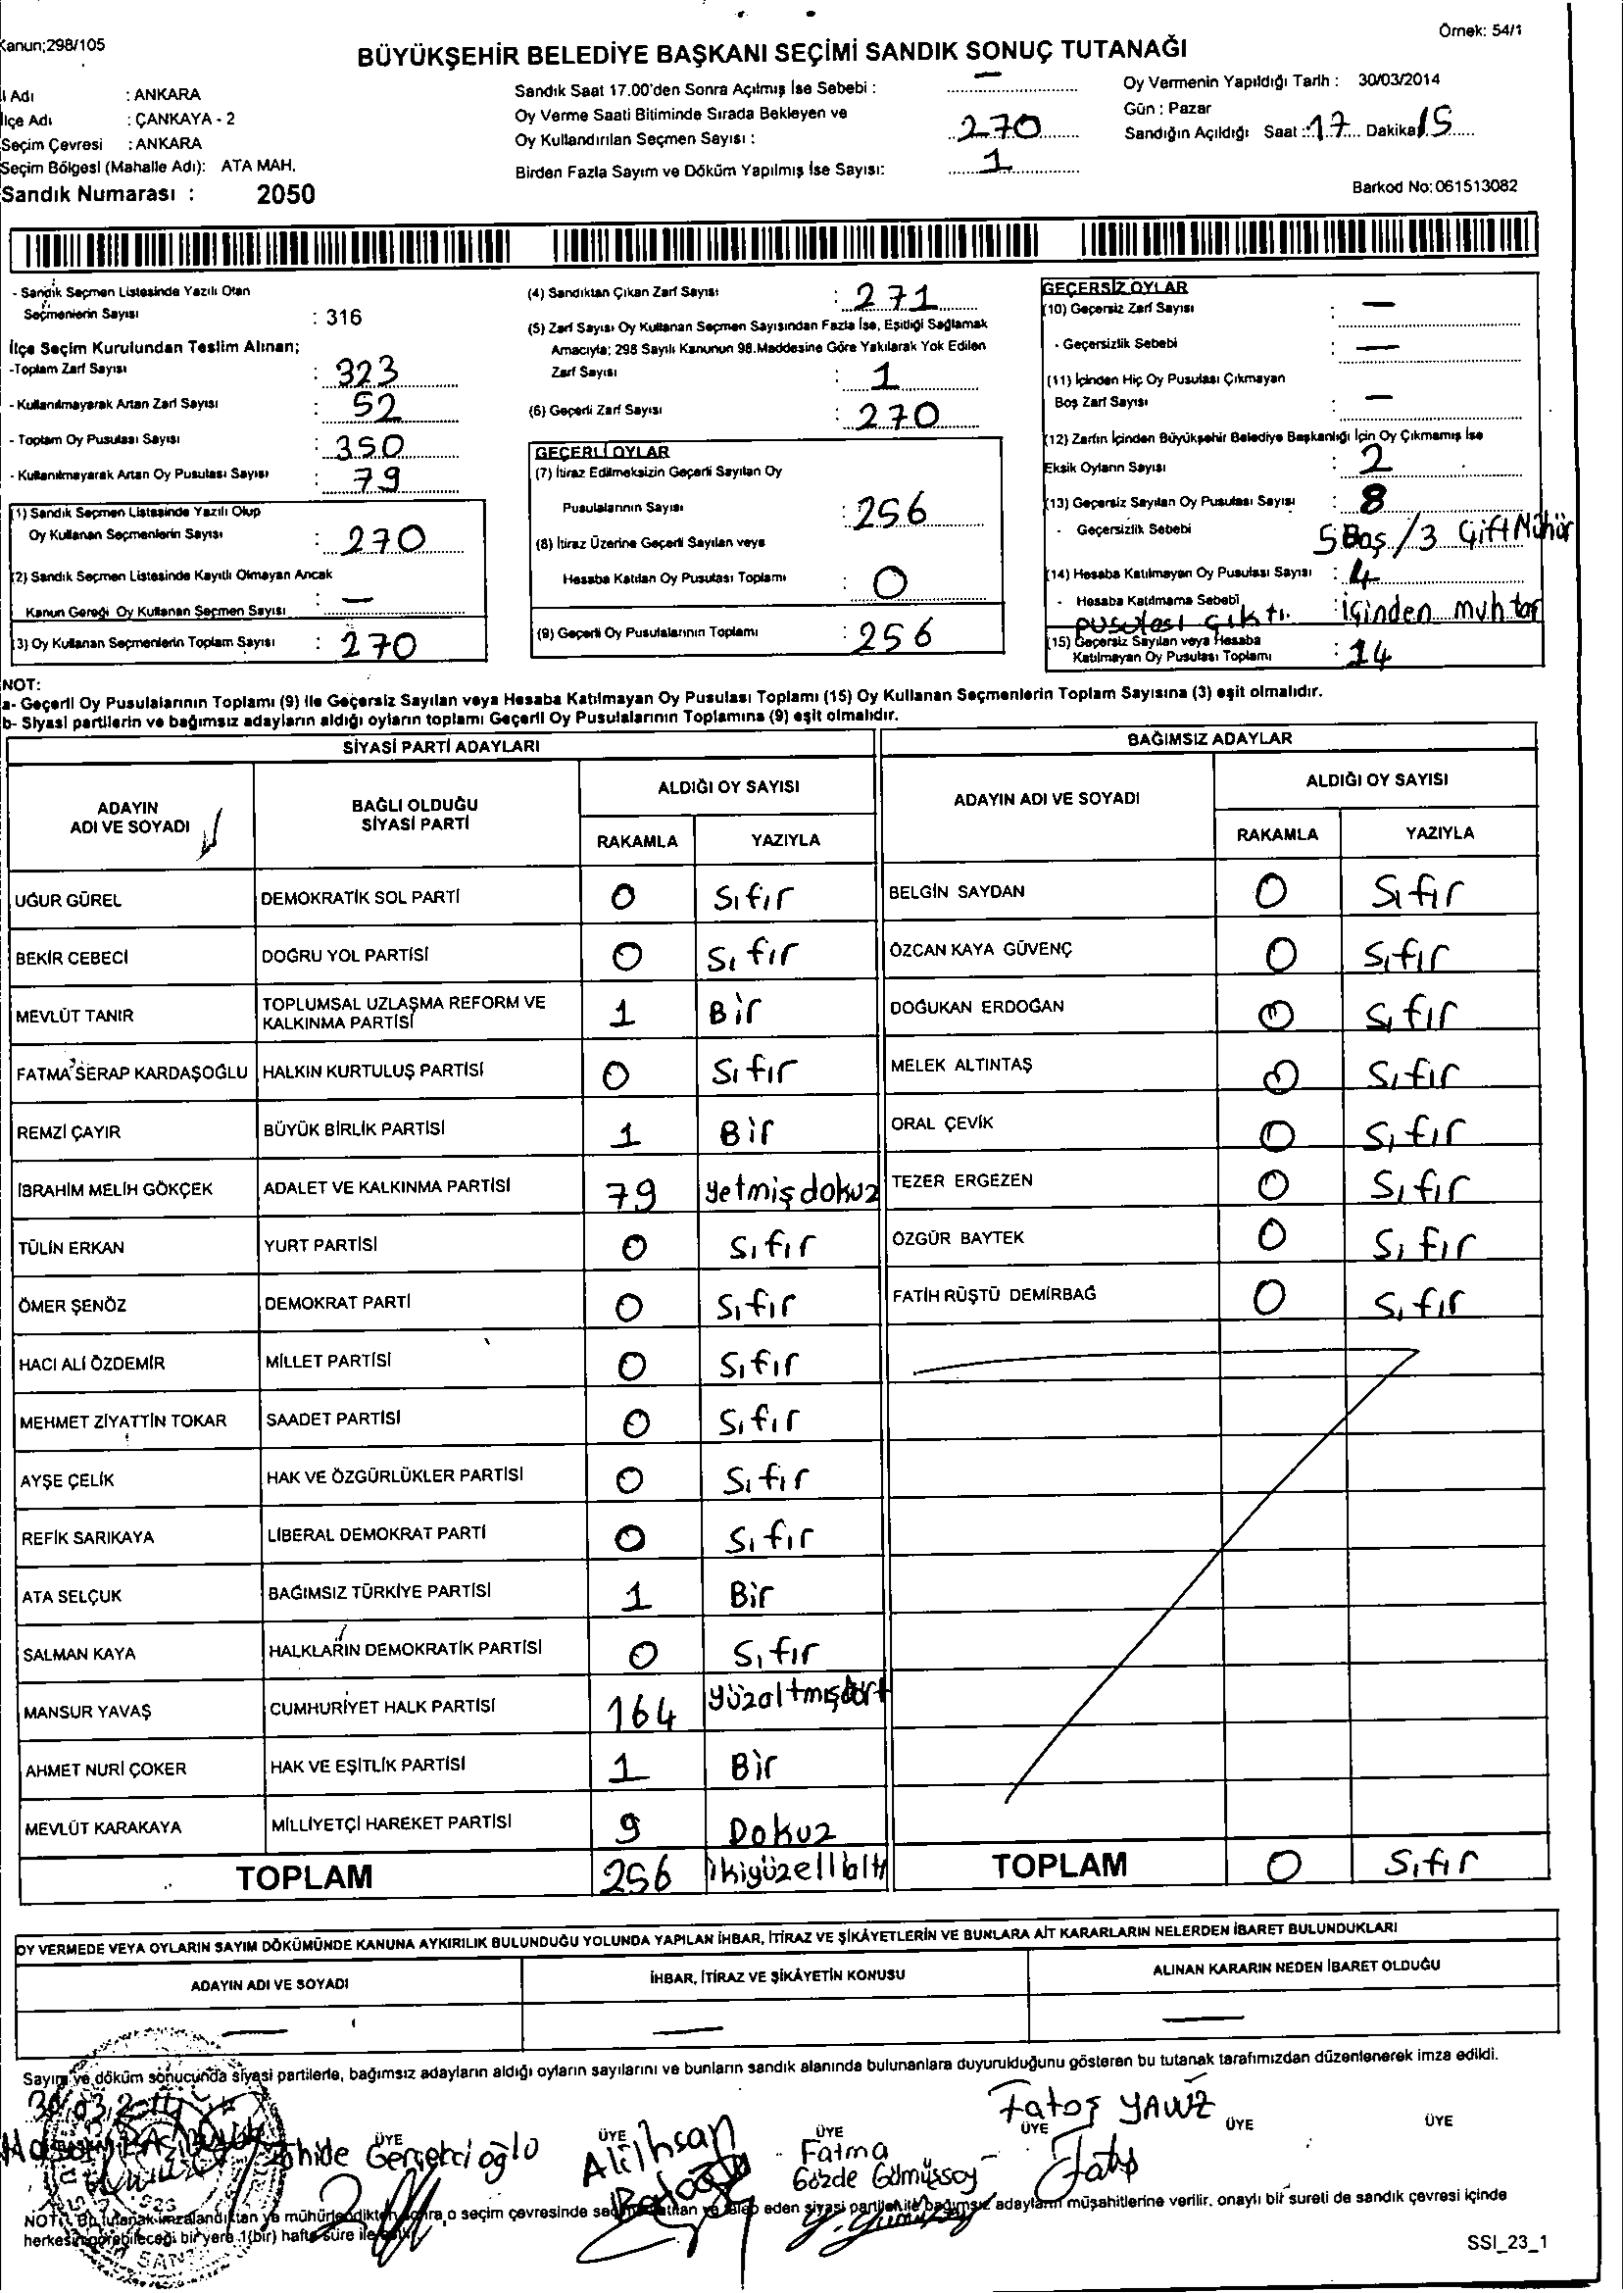 Kanun;298/105
Örnek: 54/1
BÜYÜKŞEHİR BELEDİYE BAŞKANI SEÇİMİ SANDIK SONUÇ TUTANAĞI
İl Adı : ANKARA
İlçe Adı : ÇANKAYA - 2
Seçim Çevresi : ANKARA
Seçim Bölgesi (Mahalle Adı): ATA MAH.
Sandık Numarası : 2050
Sandık Saat 17.00'den Sonra Açılmış İse Sebebi : —
Oy Verme Saati Bitiminde Sırada Bekleyen ve
Oy Kullandırılan Seçmen Sayısı : 270
Birden Fazla Sayım ve Döküm Yapılmış İse Sayısı: 1
Oy Vermenin Yapıldığı Tarih : 30/03/2014
Gün : Pazar
Sandığın Açıldığı Saat : 17 Dakika 15
Barkod No: 061513082
- Sandık Seçmen Listesinde Yazılı Olan
Seçmenlerin Sayısı : 316
İlçe Seçim Kurulundan Teslim Alınan;
-Toplam Zarf Sayısı : 323
- Kullanılmayarak Artan Zarf Sayısı : 52
- Toplam Oy Pusulası Sayısı : 350
- Kullanılmayarak Artan Oy Pusulası Sayısı : 79
(1) Sandık Seçmen Listesinde Yazılı Olup
Oy Kullanan Seçmenlerin Sayısı : 270
(2) Sandık Seçmen Listesinde Kayıtlı Olmayan Ancak
Kanun Gereği Oy Kullanan Seçmen Sayısı : —
(3) Oy Kullanan Seçmenlerin Toplam Sayısı : 270
(4) Sandıktan Çıkan Zarf Sayısı : 271
(5) Zarf Sayısı Oy Kullanan Seçmen Sayısından Fazla İse, Eşitliği Sağlamak
Amacıyla; 298 Sayılı Kanunun 98.Maddesine Göre Yakılarak Yok Edilen
Zarf Sayısı : 1
(6) Geçerli Zarf Sayısı : 270
GEÇERLİ OYLAR
(7) İtiraz Edilmeksizin Geçerli Sayılan Oy
Pusulalarının Sayısı : 256
(8) İtiraz Üzerine Geçerli Sayılan veya
Hesaba Katılan Oy Pusulası Toplamı : 0
(9) Geçerli Oy Pusulalarının Toplamı : 256
GEÇERSİZ OYLAR
(10) Geçersiz Zarf Sayısı : —
- Geçersizlik Sebebi : —
(11) İçinden Hiç Oy Pusulası Çıkmayan
Boş Zarf Sayısı : —
(12) Zarfın İçinden Büyükşehir Belediye Başkanlığı İçin Oy Çıkmamış İse
Eksik Oyların Sayısı : 2
(13) Geçersiz Sayılan Oy Pusulası Sayısı : 8
- Geçersizlik Sebebi 5 Boş / 3 Çift Mühür
(14) Hesaba Katılmayan Oy Pusulası Sayısı : 4
- Hesaba Katılmama Sebebi : içinden muhtar
pusulası çıktı.
(15) Geçersiz Sayılan veya Hesaba
Katılmayan Oy Pusulası Toplamı : 14
NOT:
a- Geçerli Oy Pusulalarının Toplamı (9) ile Geçersiz Sayılan veya Hesaba Katılmayan Oy Pusulası Toplamı (15) Oy Kullanan Seçmenlerin Toplam Sayısına (3) eşit olmalıdır.
b- Siyasi partilerin ve bağımsız adayların aldığı oyların toplamı Geçerli Oy Pusulalarının Toplamına (9) eşit olmalıdır.
SİYASİ PARTİ ADAYLARI
ADAYIN
ADI VE SOYADI
BAĞLI OLDUĞU
SİYASİ PARTİ
ALDIĞI OY SAYISI
RAKAMLA YAZIYLA
UĞUR GÜREL DEMOKRATİK SOL PARTİ 0 Sıfır
BEKİR CEBECİ DOĞRU YOL PARTİSİ 0 Sıfır
MEVLÜT TANIR TOPLUMSAL UZLAŞMA REFORM VE
KALKINMA PARTİSİ 1 Bir
FATMA SERAP KARDAŞOĞLU HALKIN KURTULUŞ PARTİSİ 0 Sıfır
REMZİ ÇAYIR BÜYÜK BİRLİK PARTİSİ 1 Bir
İBRAHİM MELİH GÖKÇEK ADALET VE KALKINMA PARTİSİ 79 yetmiş dokuz
TÜLİN ERKAN YURT PARTİSİ 0 Sıfır
ÖMER ŞENÖZ DEMOKRAT PARTİ 0 Sıfır
HACI ALİ ÖZDEMİR MİLLET PARTİSİ 0 Sıfır
MEHMET ZİYATTİN TOKAR SAADET PARTİSİ 0 Sıfır
AYŞE ÇELİK HAK VE ÖZGÜRLÜKLER PARTİSİ 0 Sıfır
REFİK SARIKAYA LİBERAL DEMOKRAT PARTİ 0 Sıfır
ATA SELÇUK BAĞIMSIZ TÜRKİYE PARTİSİ 1 Bir
SALMAN KAYA HALKLARIN DEMOKRATİK PARTİSİ 0 Sıfır
MANSUR YAVAŞ CUMHURİYET HALK PARTİSİ 164 yüzaltmışdört
AHMET NURİ ÇOKER HAK VE EŞİTLİK PARTİSİ 1 Bir
MEVLÜT KARAKAYA MİLLİYETÇİ HAREKET PARTİSİ 9 Dokuz
TOPLAM 256 ikiyüzellialtı
BAĞIMSIZ ADAYLAR
ADAYIN ADI VE SOYADI
ALDIĞI OY SAYISI
RAKAMLA YAZIYLA
BELGİN SAYDAN 0 Sıfır
ÖZCAN KAYA GÜVENÇ 0 Sıfır
DOĞUKAN ERDOĞAN 0 Sıfır
MELEK ALTINTAŞ 0 Sıfır
ORAL ÇEVİK 0 Sıfır
TEZER ERGEZEN 0 Sıfır
ÖZGÜR BAYTEK 0 Sıfır
FATİH RÜŞTÜ DEMİRBAĞ 0 Sıfır
TOPLAM 0 Sıfır
OY VERMEDE VEYA OYLARIN SAYIM DÖKÜMÜNDE KANUNA AYKIRILIK BULUNDUĞU YOLUNDA YAPILAN İHBAR, İTİRAZ VE ŞİKÂYETLERİN VE BUNLARA AİT KARARLARIN NELERDEN İBARET BULUNDUKLARI
ADAYIN ADI VE SOYADI İHBAR, İTİRAZ VE ŞİKÂYETİN KONUSU ALINAN KARARIN NEDEN İBARET OLDUĞU
— — —
Sayım ve döküm sonucunda siyasi partilerle, bağımsız adayların aldığı oyların sayılarını ve bunların sandık alanında bulunanlara duyurulduğunu gösteren bu tutanak tarafımızdan düzenlenerek imza edildi.
Fatoş YAVUZ
ÜYE ÜYE ÜYE ÜYE ÜYE ÜYE
Aliihsan
Fatma
Gözde Gümüşsoy
NOT: Bu tutanak imzalandıktan ve mühürlendikten sonra, o seçim çevresinde eden siyasi partiler ile bağımsız adayların müşahitlerine verilir. onaylı bir sureti de sandık çevresi içinde
herkesin görebileceği bir yere 1(bir) hafta süre ile
SSI_23_1